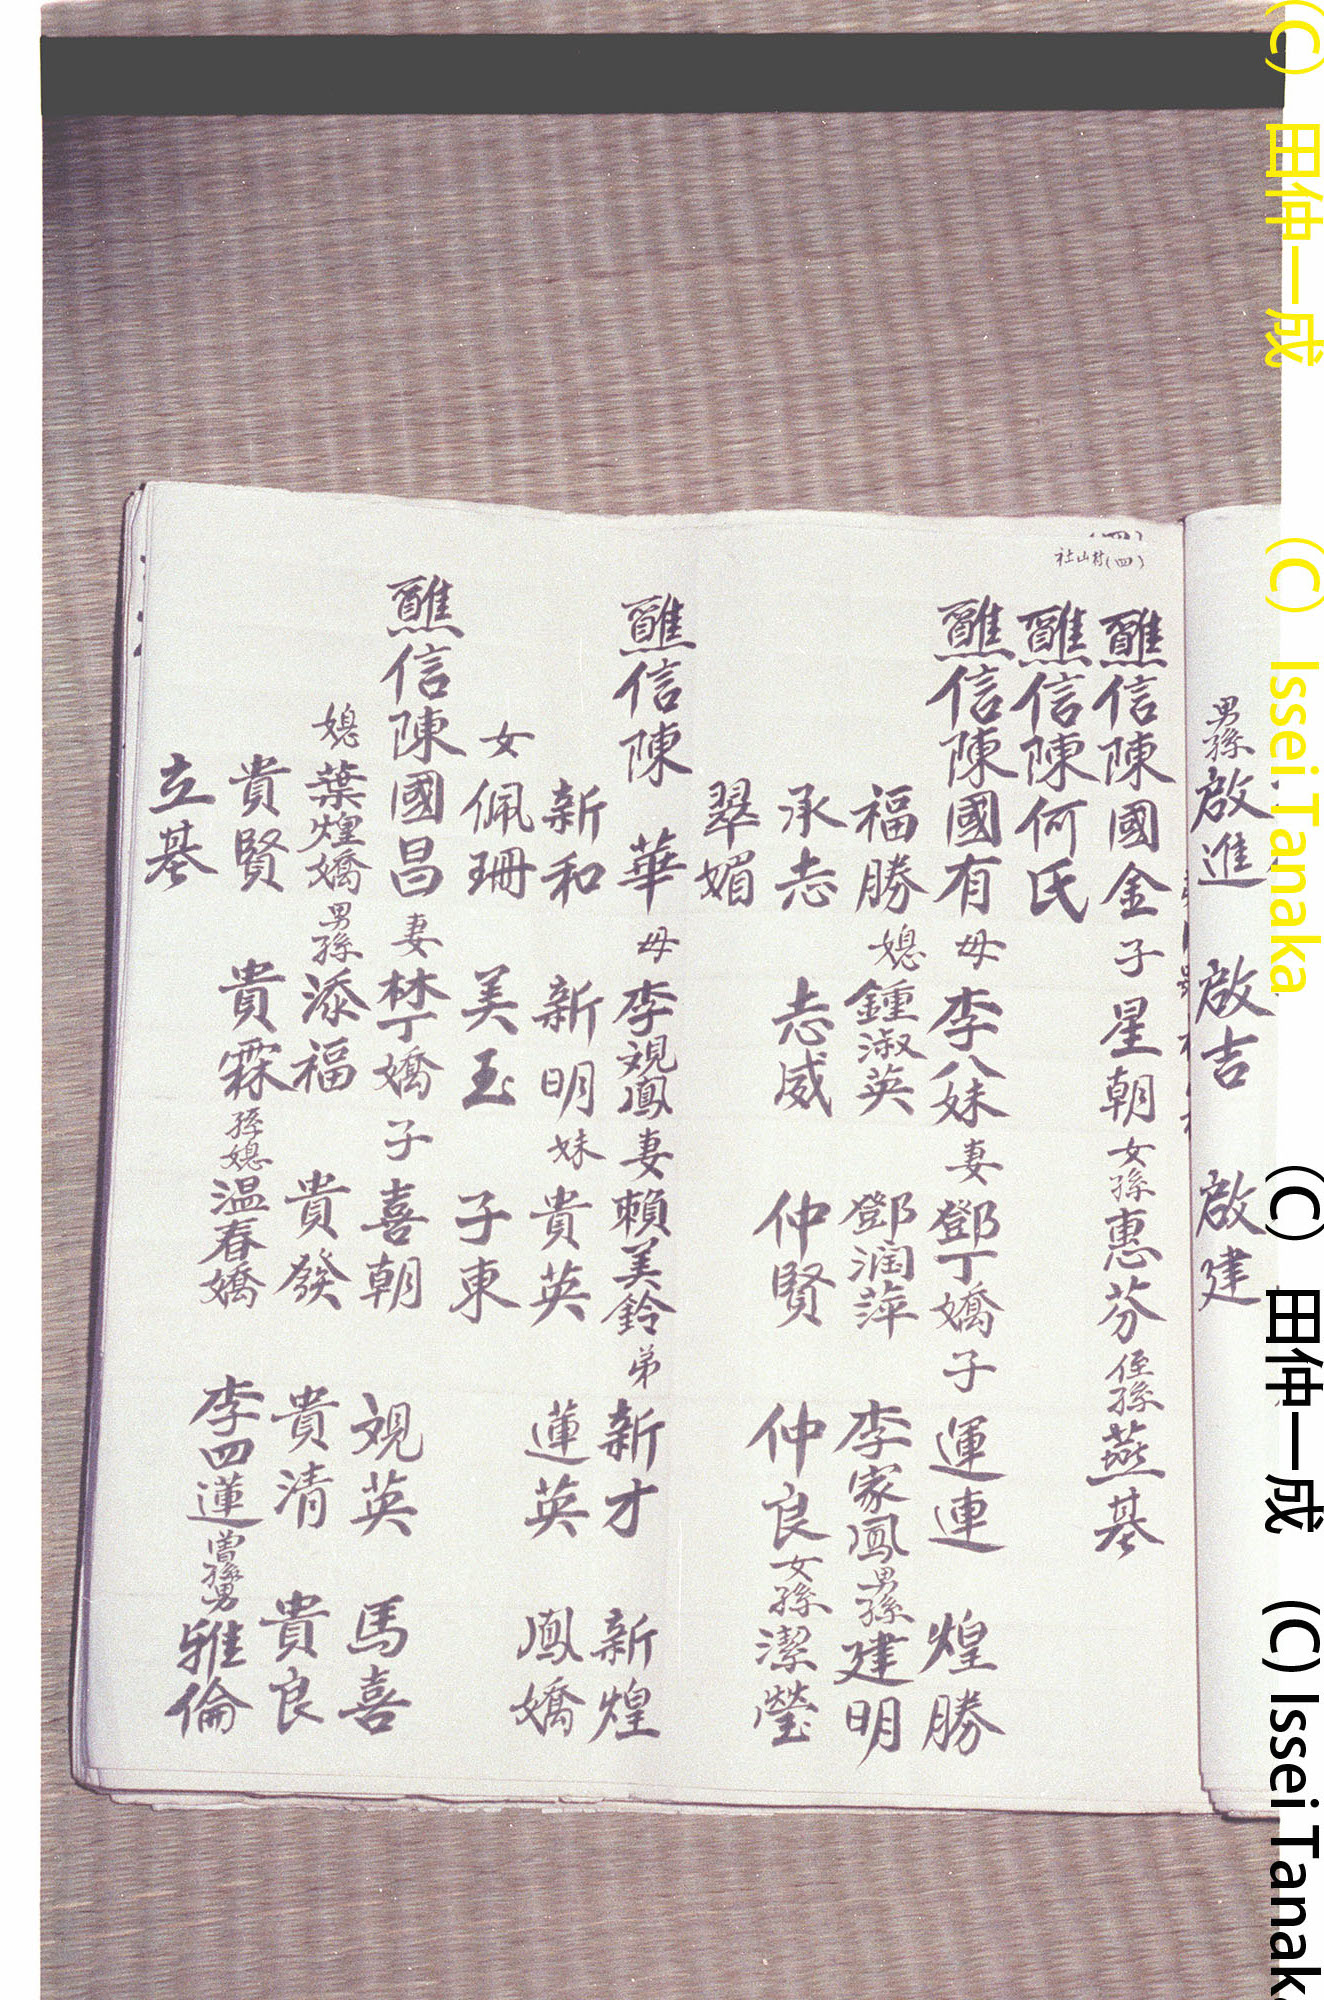 男孫啟進 啟吉 啟建
社山村(四)
醮信陳國金子星朝女孫惠芬侄孫燕基
醮信陳何氏
醮信陳國有母李八妹妻鄧丁嬌子運連 煌勝
福勝媳鍾淑英 鄧潤萍 李家鳳男孫建明
承志 志威 仲賢 仲良女孫潔瑩
翠媚
醮信陳 華母李觀鳳妻賴美鈴弟新才 新煌
新和 新明妹貴英 蓮英 鳳嬌
女佩珊 美玉 子東
醮信陳國昌妻禁丁嬌子喜朝 觀英 馬喜
媳葉煌嬌男孫添福 貴發 貴清 貴良
貴賢 貴霖孫媳温春嬌 李四蓮曾孫男雅倫
立基
(C) 田仲一成 (C) Issei Tanaka (C) 田仲一成 (C) Issei Tanaka